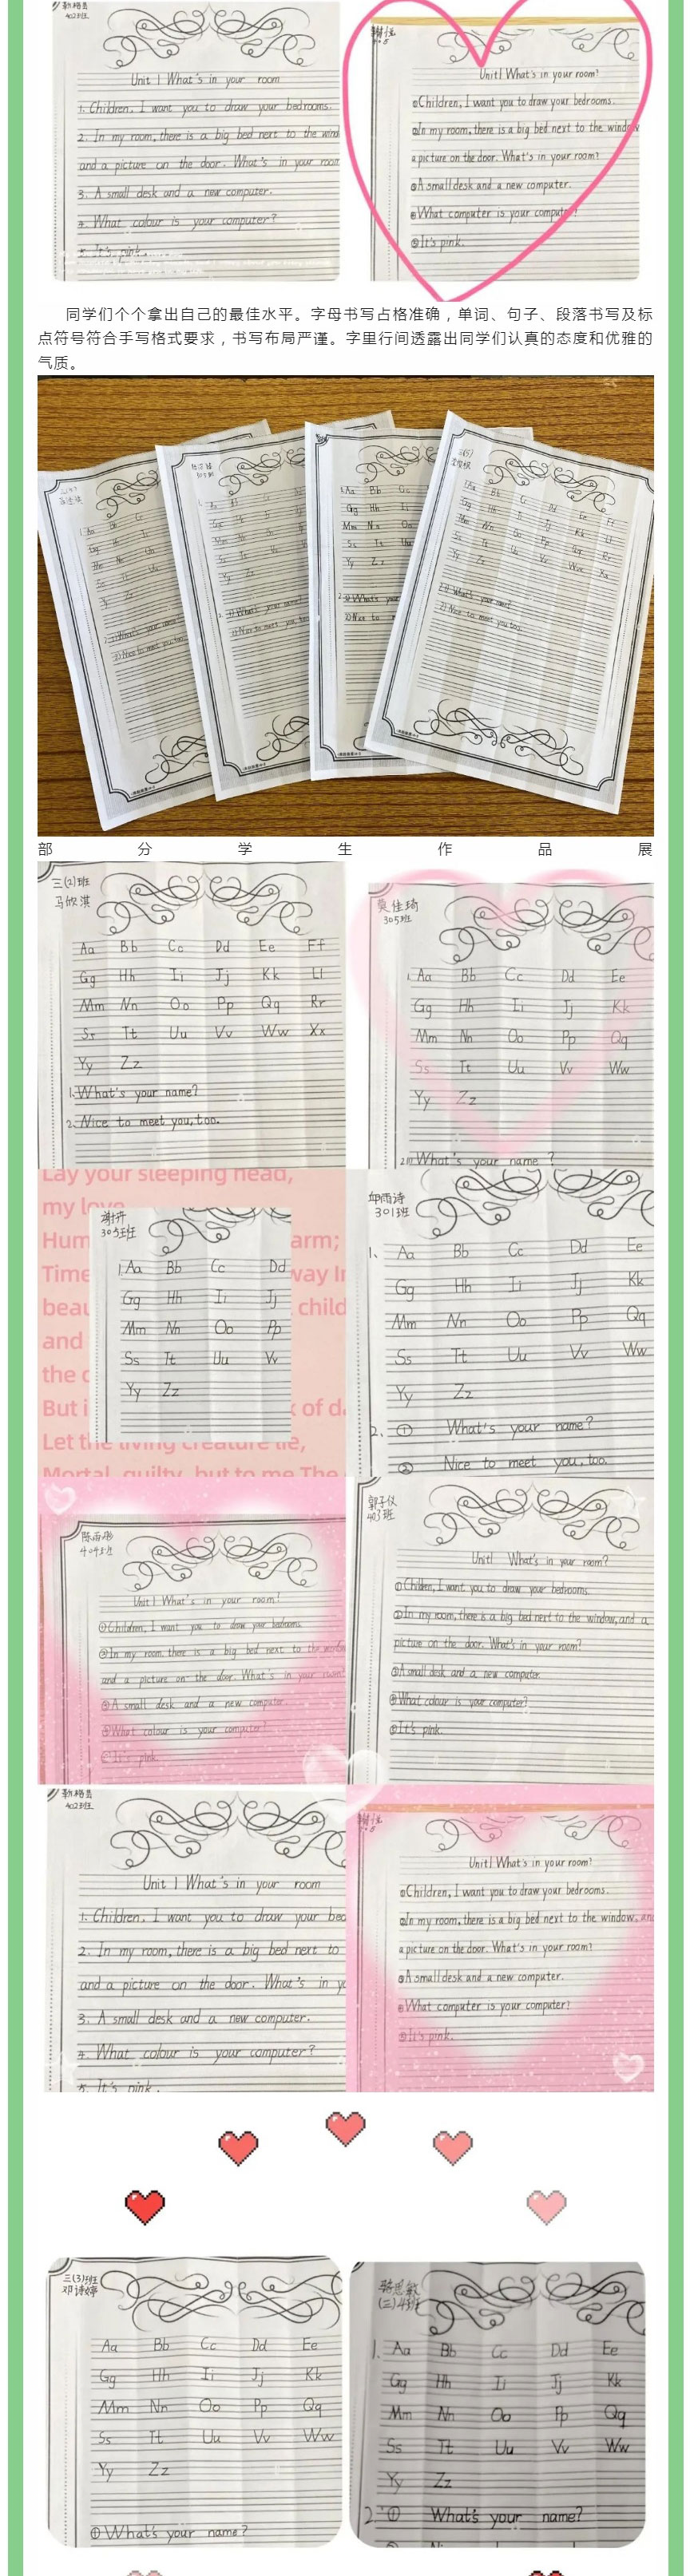 402班
Unit 1 What's in your room
1. Children, I want you to draw your bedrooms.
2. In my room, there is a big bed next to the wind
and a picture on the door. What's in your room
3. A small desk and a new computer.
4. What colour is your computer?
5. It's pink.
Unit1 What's in your room?
①Children, I want you to draw your bedrooms.
②In my room, there is a big bed next to the window
a picture on the door. What's in your room?
③A small desk and a new computer.
④What computer is your computer?
⑤It's pink.
同学们个个拿出自己的最佳水平。字母书写占格准确，单词、句子、段落书写及标
点符号符合手写格式要求，书写布局严谨。字里行间透露出同学们认真的态度和优雅的
气质。
1. Aa Bb Cc
Gg Hh Ii
Mm Nn Oo
Ss Tt Uu
Yy Zz
2. ① What's your
② Nice to
Aa Bb Cc Dd Ee Ff
Gg Hh Ii Jj Kk Ll
Mm Nn Oo Pp Qq Rr
Ss Tt Uu Vv Ww Xx
Yy Zz
2. ① What's your name?
② Nice to meet you, too.
部分学生作品展
三(2)班
Aa Bb Cc Dd Ee Ff
Gg Hh Ii Jj Kk Ll
Mm Nn Oo Pp Qq Rr
Ss Tt Uu Vv Ww Xx
Yy Zz
1. What's your name?
2. Nice to meet you, too.
305班
1. Aa Bb Cc Dd Ee
Gg Hh Ii Jj Kk
Mm Nn Oo Pp Qq
Ss Tt Uu Vv Ww
Yy Zz
2.① What's your name ?
Lay your sleeping head,
my love
Hum arm;
Time way
beau child
and
the
But i of
Let the living creature lie,
Mortal, guilty, but to me The
305班
1. Aa Bb Cc Dd
Gg Hh Ii Jj
Mm Nn Oo Pp
Ss Tt Uu Vv
Yy Zz
邱雨诗
301班
1、 Aa Bb Cc Dd Ee
Gg Hh Ii Jj Kk
Mm Nn Oo Pp Qq
Ss Tt Uu Vv Ww
Yy Zz
2、 ① What's your name?
② Nice to meet you, too.
陈雨彤
404班
Unit 1 What's in your room?
①Children, I want you to draw your bedrooms.
②In my room, there is a big bed next to the window
and a picture on the door. What's in your room?
③A small desk and a new computer.
④What colour is your computer?
⑤It's pink.
郭子仪
403班
Unit1 What's in your room?
①Children, I want you to draw your bedrooms.
②In my room, there is a big bed next to the window, and a
picture on the door. What's in your room?
③A small desk and a new computer.
④What colour is your computer?
⑤It's pink.
402班
Unit 1 What's in your room
1. Children, I want you to draw your bed
2. In my room, there is a big bed next to
and a picture on the door. What's in y
3. A small desk and a new computer.
4. What colour is your computer?
5. It's pink.
Unit1 What's in your room?
①Children, I want you to draw your bedrooms.
②In my room, there is a big bed next to the window, and
a picture on the door. What's in your room?
③A small desk and a new computer.
④What computer is your computer?
⑤It's pink.
三(3)班
邓诗婷
Aa Bb Cc Dd Ee
Gg Hh Ii Jj Kk
Mm Nn Oo Pp Qq
Ss Tt Uu Vv Ww
Yy Zz
①What's your name?
骆思敏
(三)4班
1. Aa Bb Cc Dd Ee
Gg Hh Ii Jj Kk
Mm Nn Oo Pp Qq
Ss Tt Uu Vv Ww
Yy Zz
2. ① What's your name?